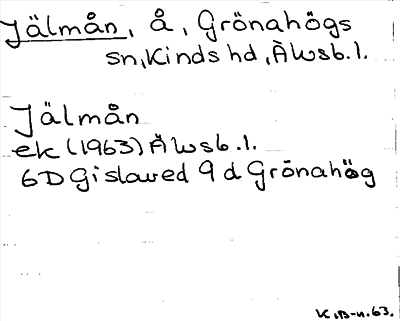 Jälmån, å, Grönahögs
sn, Kinds hd, Älvsb. l.
Jälmån
ek (1963) Älvsb. l.
6D Gislaved 9 d Grönahög
K.B-n. 63.